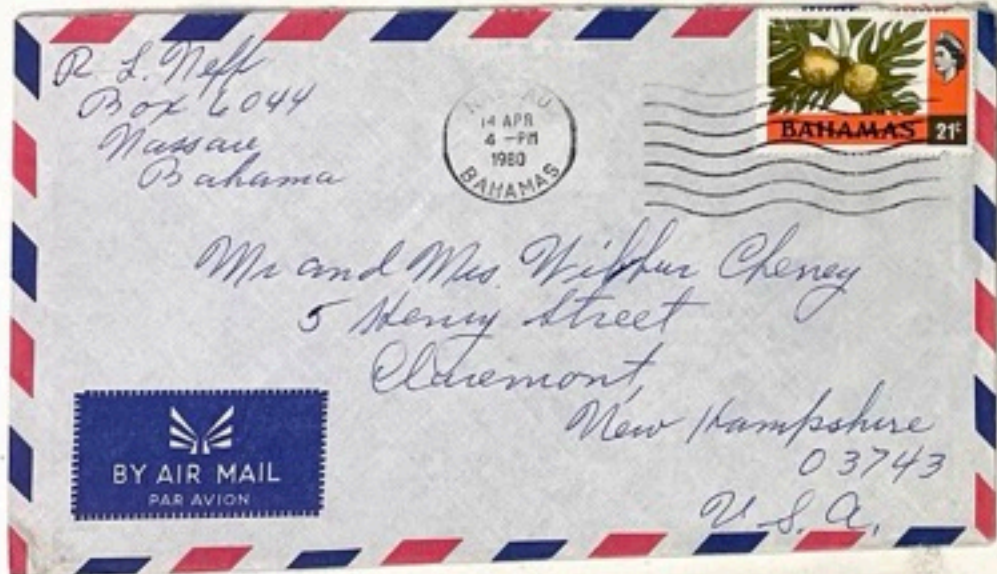 R L. Neff
Box 6044
Nassau
Bahama
NASSAU
14 APR
4 -PM
1980
BAHAMAS
BAHAMAS 21¢
Mr and Mrs. Wilbur Cheney
5 Henry Street
Claremont,
New Hampshire
03743
U.S.A.
BY AIR MAIL
PAR AVION